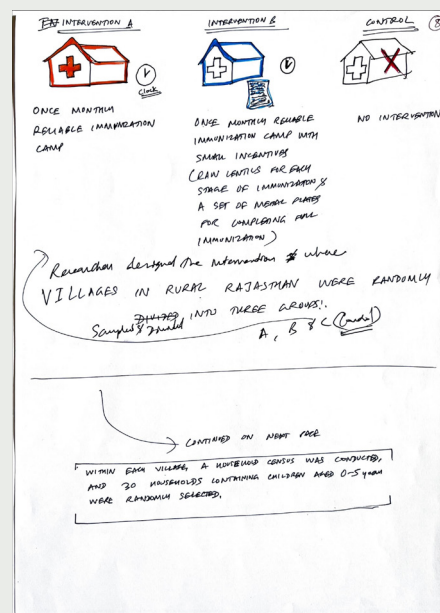 INTERVENTION A
INTERVENTION B
CONTROL
Clock
ONCE MONTHLY
RELIABLE IMMUNIZATION
CAMP
ONCE MONTHLY RELIABLE
IMMUNIZATION CAMP WITH
SMALL INCENTIVES
(RAW LENTILS FOR EACH
STAGE OF IMMUNIZATION &
A SET OF METAL PLATES
FOR COMPLETING FULL
IMMUNIZATION)
NO INTERVENTION
Researchers designed the intervention where
VILLAGES IN RURAL RAJASTHAN WERE RANDOMLY
Sampled & DIVIDED INTO THREE GROUPS:
A, B & C (Control)
CONTINUED ON NEXT PAGE
WITHIN EACH VILLAGE, A HOUSEHOLD CENSUS WAS CONDUCTED,
AND 30 HOUSEHOLDS CONTAINING CHILDREN AGED 0-5 years
WERE RANDOMLY SELECTED.